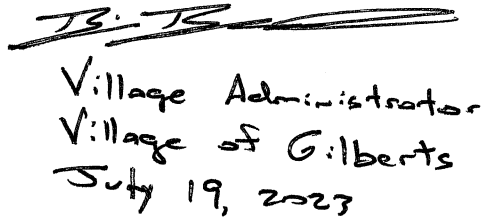 Village Administrator
Village of Gilberts
July 19, 2023